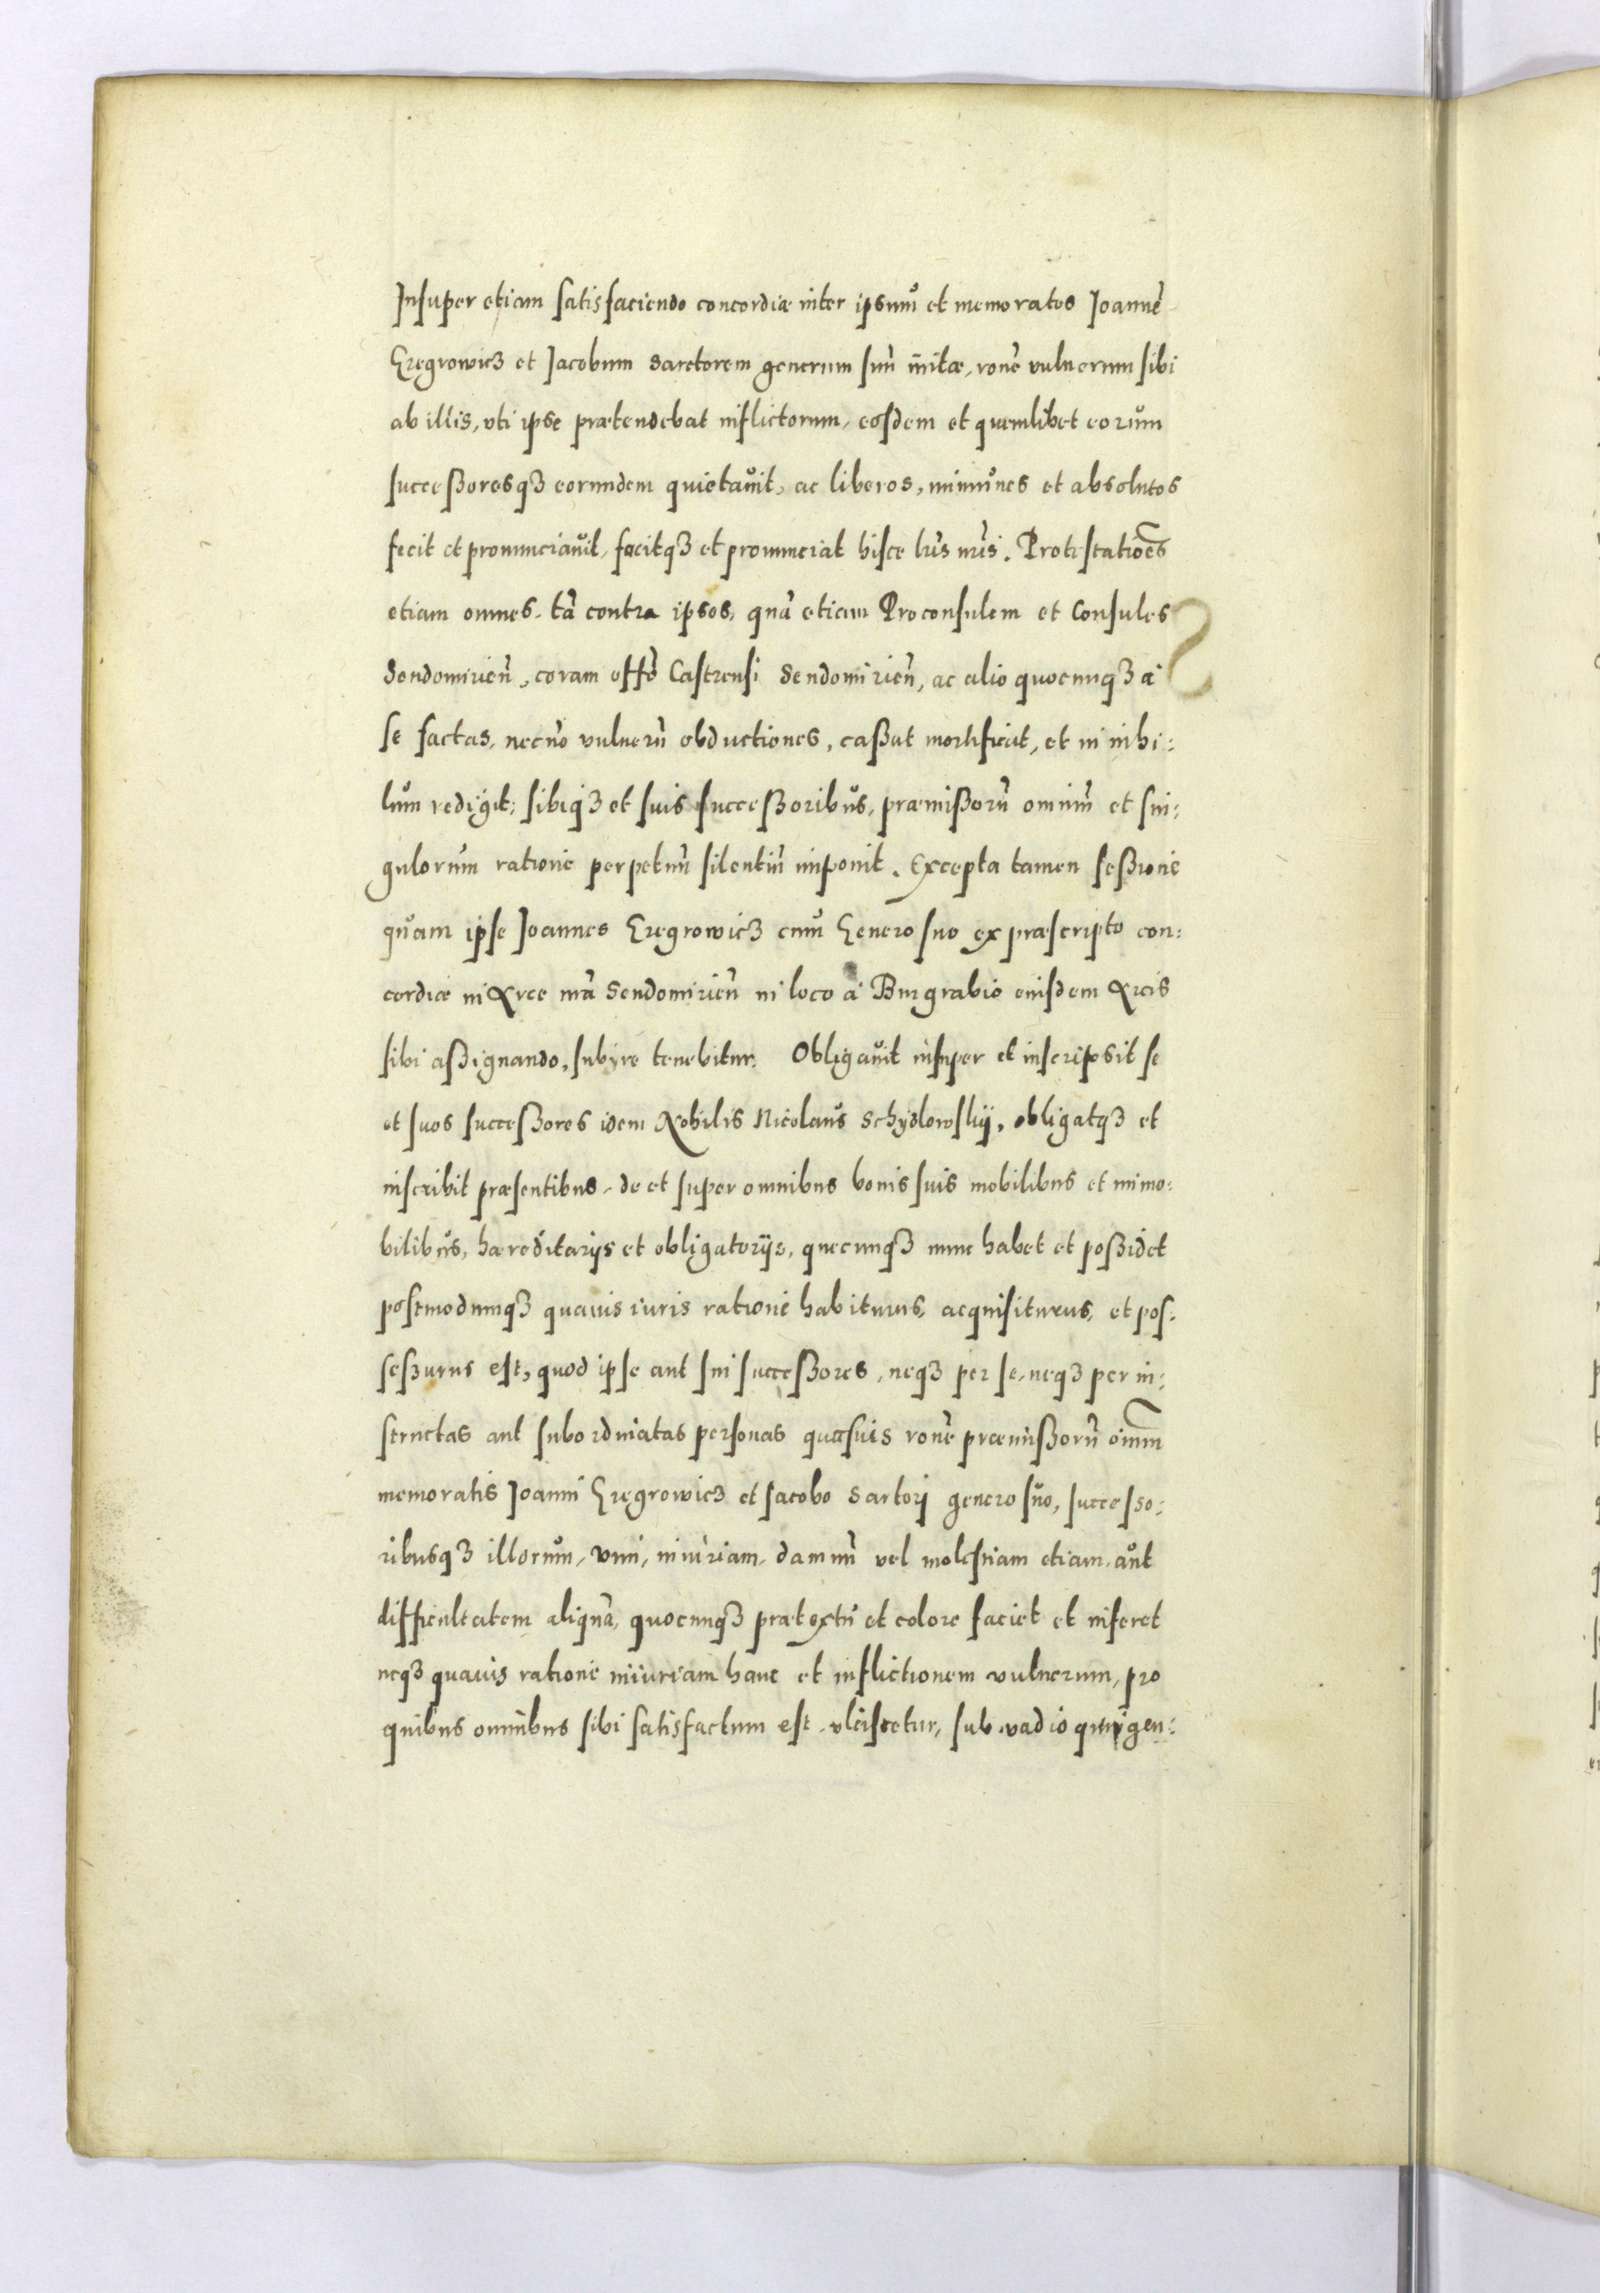 Insuper etiam satisfaciendo concordiæ inter ipsum et memoratos Joannē
Gregrowicz et Jacobum Sartorem generum suū initæ, ronē vulnerum sibi
ab illis, vti ipse prætendebat inflictorum, eosdem et quemlibet eorum
successoresqꝫ eorundem quietavit, ac liberos, immunes et absolutos
fecit et pronunciavit, facitqꝫ et pronunciat hisce lrīs nrīs. Protestatioēs
etiam omnes, tā contra ipsos, quā etiam Proconsulem et Consules
Sendomirieñ, coram offō Castrensi Sendomirieñ, ac alio quocunqꝫ à
se factas, necnō vulnerū obductiones, cassat mortificat, et in nihi:
lum redigit; sibiqꝫ et suis successoribus, præmissorū omniū et sin:
gulorum ratione perpetuū silentiū imponit. Excepta tamen sessione
quam ipse Joannes Gregrowicz cum Genero suo ex præscripto con:
cordiæ in Arce nrā Sendomirieñ in loco à Burgrabio eiusdem Arcis
sibi assignando, subire tenebitur. Obligavit insuper et inscripsit se
et suos successores idem Nobilis Nicolaus Schydlowskij, obligatqꝫ et
inscribit præsentibus, de et super omnibus bonis suis mobilibus et immo:
bilibus, hæreditarijs et obligatorijs, quecunqꝫ nunc habet et possidet
postmodumqꝫ quavis iuris ratione habiturus, acquisiturus, et pos:
sessurus est, quod ipse aut sui successores, neqꝫ per se, neqꝫ per in:
structas aut subordinatas personas quasvis ronē præmissorū oīum
memoratis Joanni Gregrowicz et Jacobo Sartorj genero suo, successo:
ribusqꝫ illorum, vim, iniuriam, damnū vel molestiam etiam, aut
difficultatem aliquā, quocunqꝫ prætextu et colore faciet et inferet
neqꝫ quavis ratione iniuriam hanc et inflictionem vulnerum, pro
quibus omnibus sibi satisfactum est, vlciscetur, sub vadio quingen: